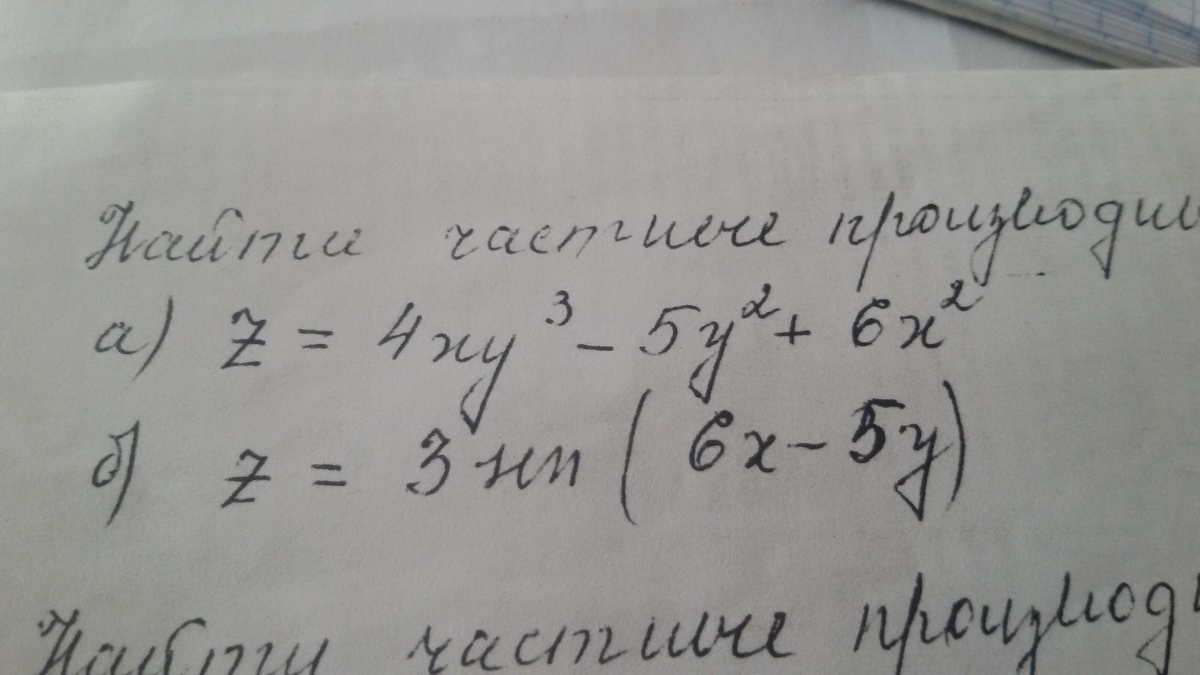 Найти частные производн
а) z = 4xy³ - 5y² + 6x²
б) z = 3 sin (6x - 5y)
Найти частные производ